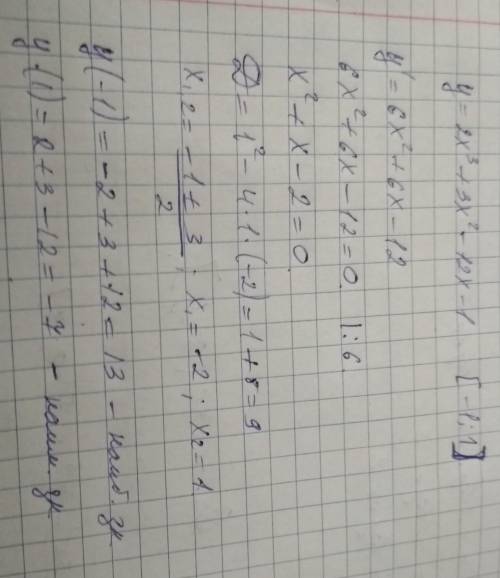 y = 2x³ + 3x² - 12x - 1 [-1; 1]
y' = 6x² + 6x - 12
6x² + 6x - 12 = 0 |:6
x² + x - 2 = 0
D = 1² - 4·1·(-2) = 1 + 8 = 9
x₁,₂ = (-1 ± 3)/2; x₁ = -2; x₂ = 1
y(-1) = -2 + 3 + 12 = 13 - наиб. зн.
y(1) = 2 + 3 - 12 = -7 - наим. зн.